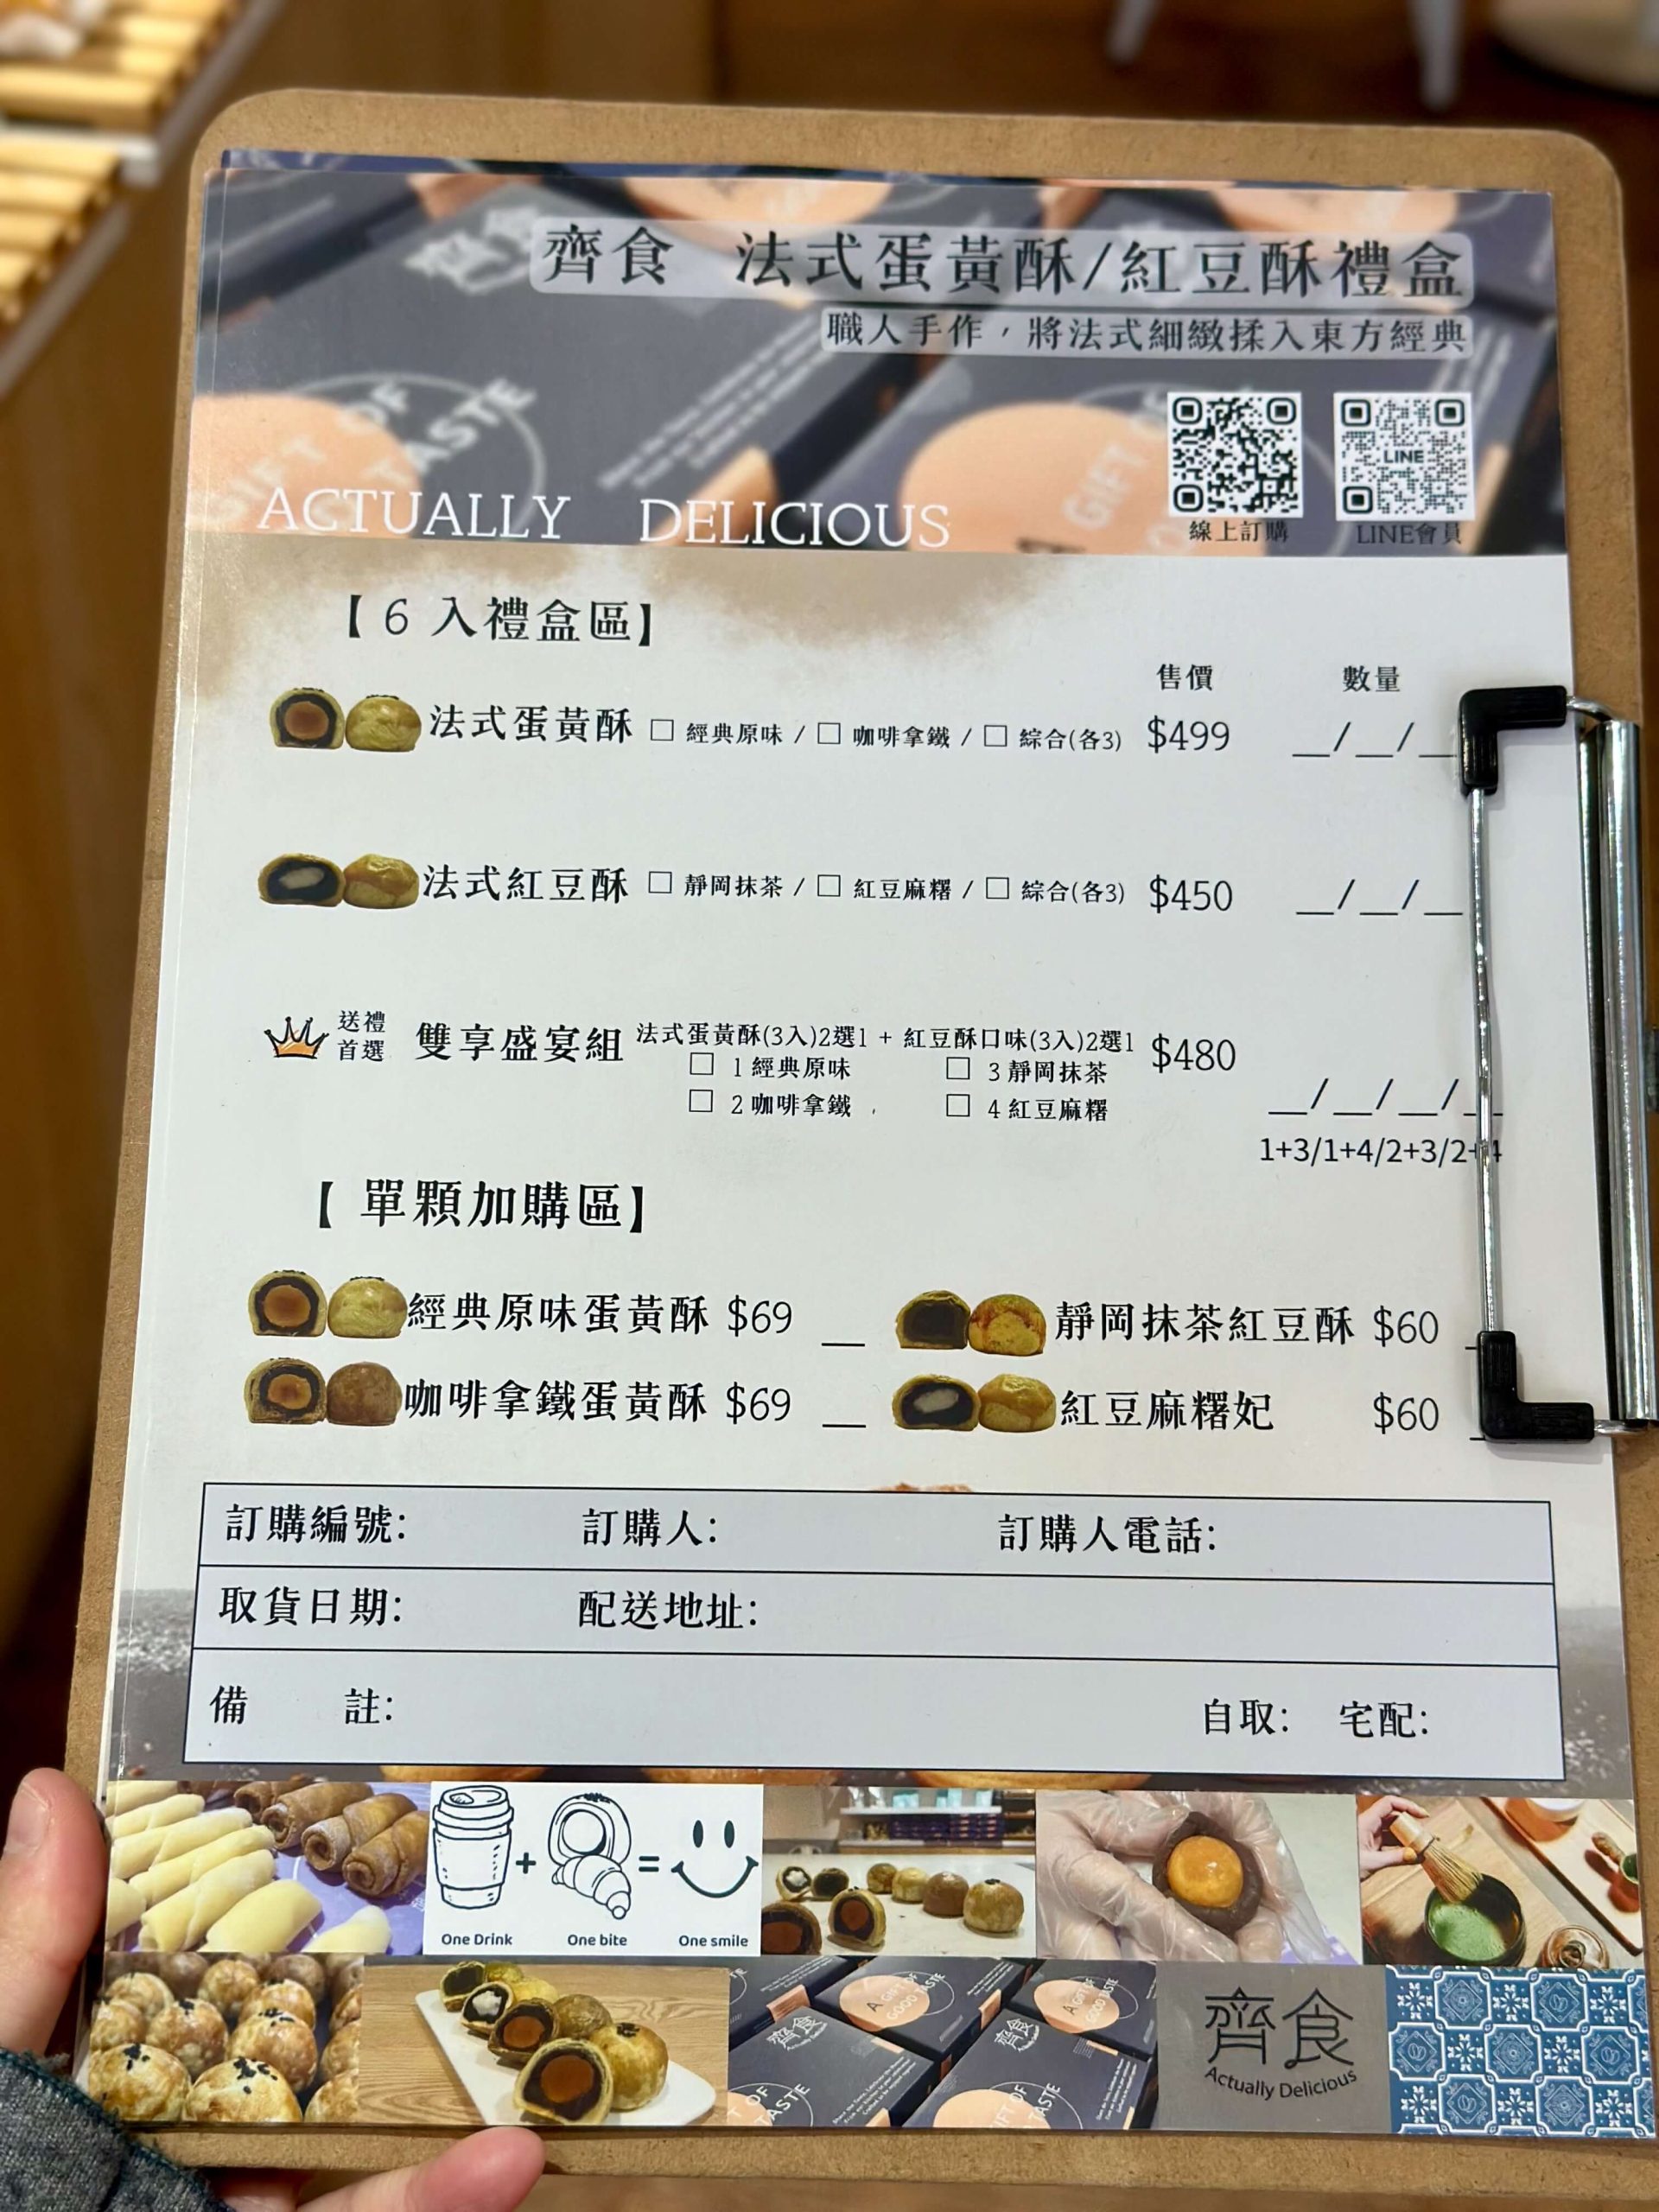 齊食 法式蛋黃酥/紅豆酥禮盒
職人手作，將法式細緻揉入東方經典
GIFT OF TASTE
A GIFT
LINE
ACTUALLY DELICIOUS
線上訂購 LINE會員
【 6 入禮盒區】
售價 數量
法式蛋黃酥 □ 經典原味 / □ 咖啡拿鐵 / □ 綜合(各3) $499 __/__/__
法式紅豆酥 □ 靜岡抹茶 / □ 紅豆麻糬 / □ 綜合(各3) $450 __/__/__
送禮首選 雙享盛宴組 法式蛋黃酥(3入)2選1 + 紅豆酥口味(3入)2選1 $480
□ 1 經典原味 □ 3 靜岡抹茶
□ 2 咖啡拿鐵 □ 4 紅豆麻糬
__/__/__/__
1+3/1+4/2+3/2+4
【 單顆加購區】
經典原味蛋黃酥 $69 __ 靜岡抹茶紅豆酥 $60
咖啡拿鐵蛋黃酥 $69 __ 紅豆麻糬妃 $60
訂購編號: 訂購人: 訂購人電話:
取貨日期: 配送地址:
備 註: 自取: 宅配:
+ =
One Drink One bite One smile
A GIFT OF GOOD TASTE
A GIFT OF GOOD TASTE
齊食
齊食
齊食
Actually Delicious